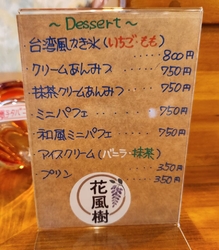 ~ Dessert ~
・台湾風かき氷(いちご・もも)
800円
・クリームあんみつ 750円
・抹茶クリームあんみつ 750円
・ミニパフェ 750円
・和風ミニパフェ 750円
・アイスクリーム(バニラ・抹茶) 350円
・プリン 350円
花風樹